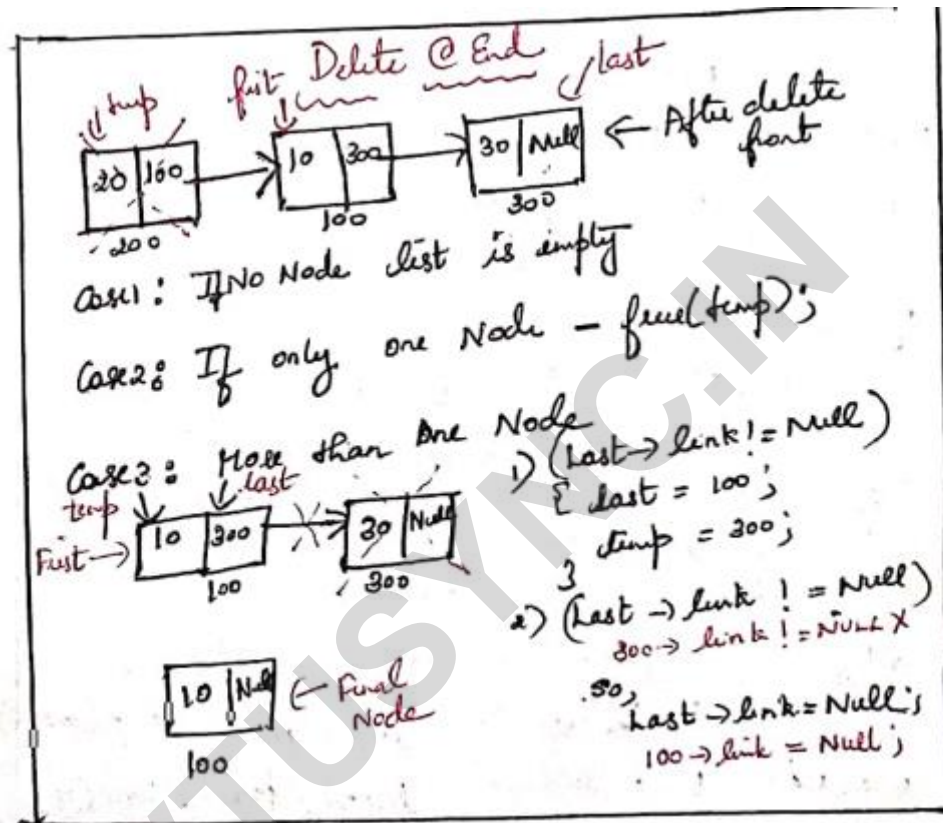 Delete @ End
temp
first
Last
20 | 100
10 | 300
30 | Null
← After delete front
200
100
300
Case1: If No Node list is empty
Case2: If only one Node - free(temp);
Case3: More than one Node
temp
last
First →
10 | 300
30 | Null
100
300
1) (Last → link != Null)
{ last = 100;
temp = 300;
}
2) (Last → link != Null)
300 → link != NULL X
so,
Last → link = Null;
100 → link = Null;
10 | Null
← Final Node
100
VTUSYNC.IN